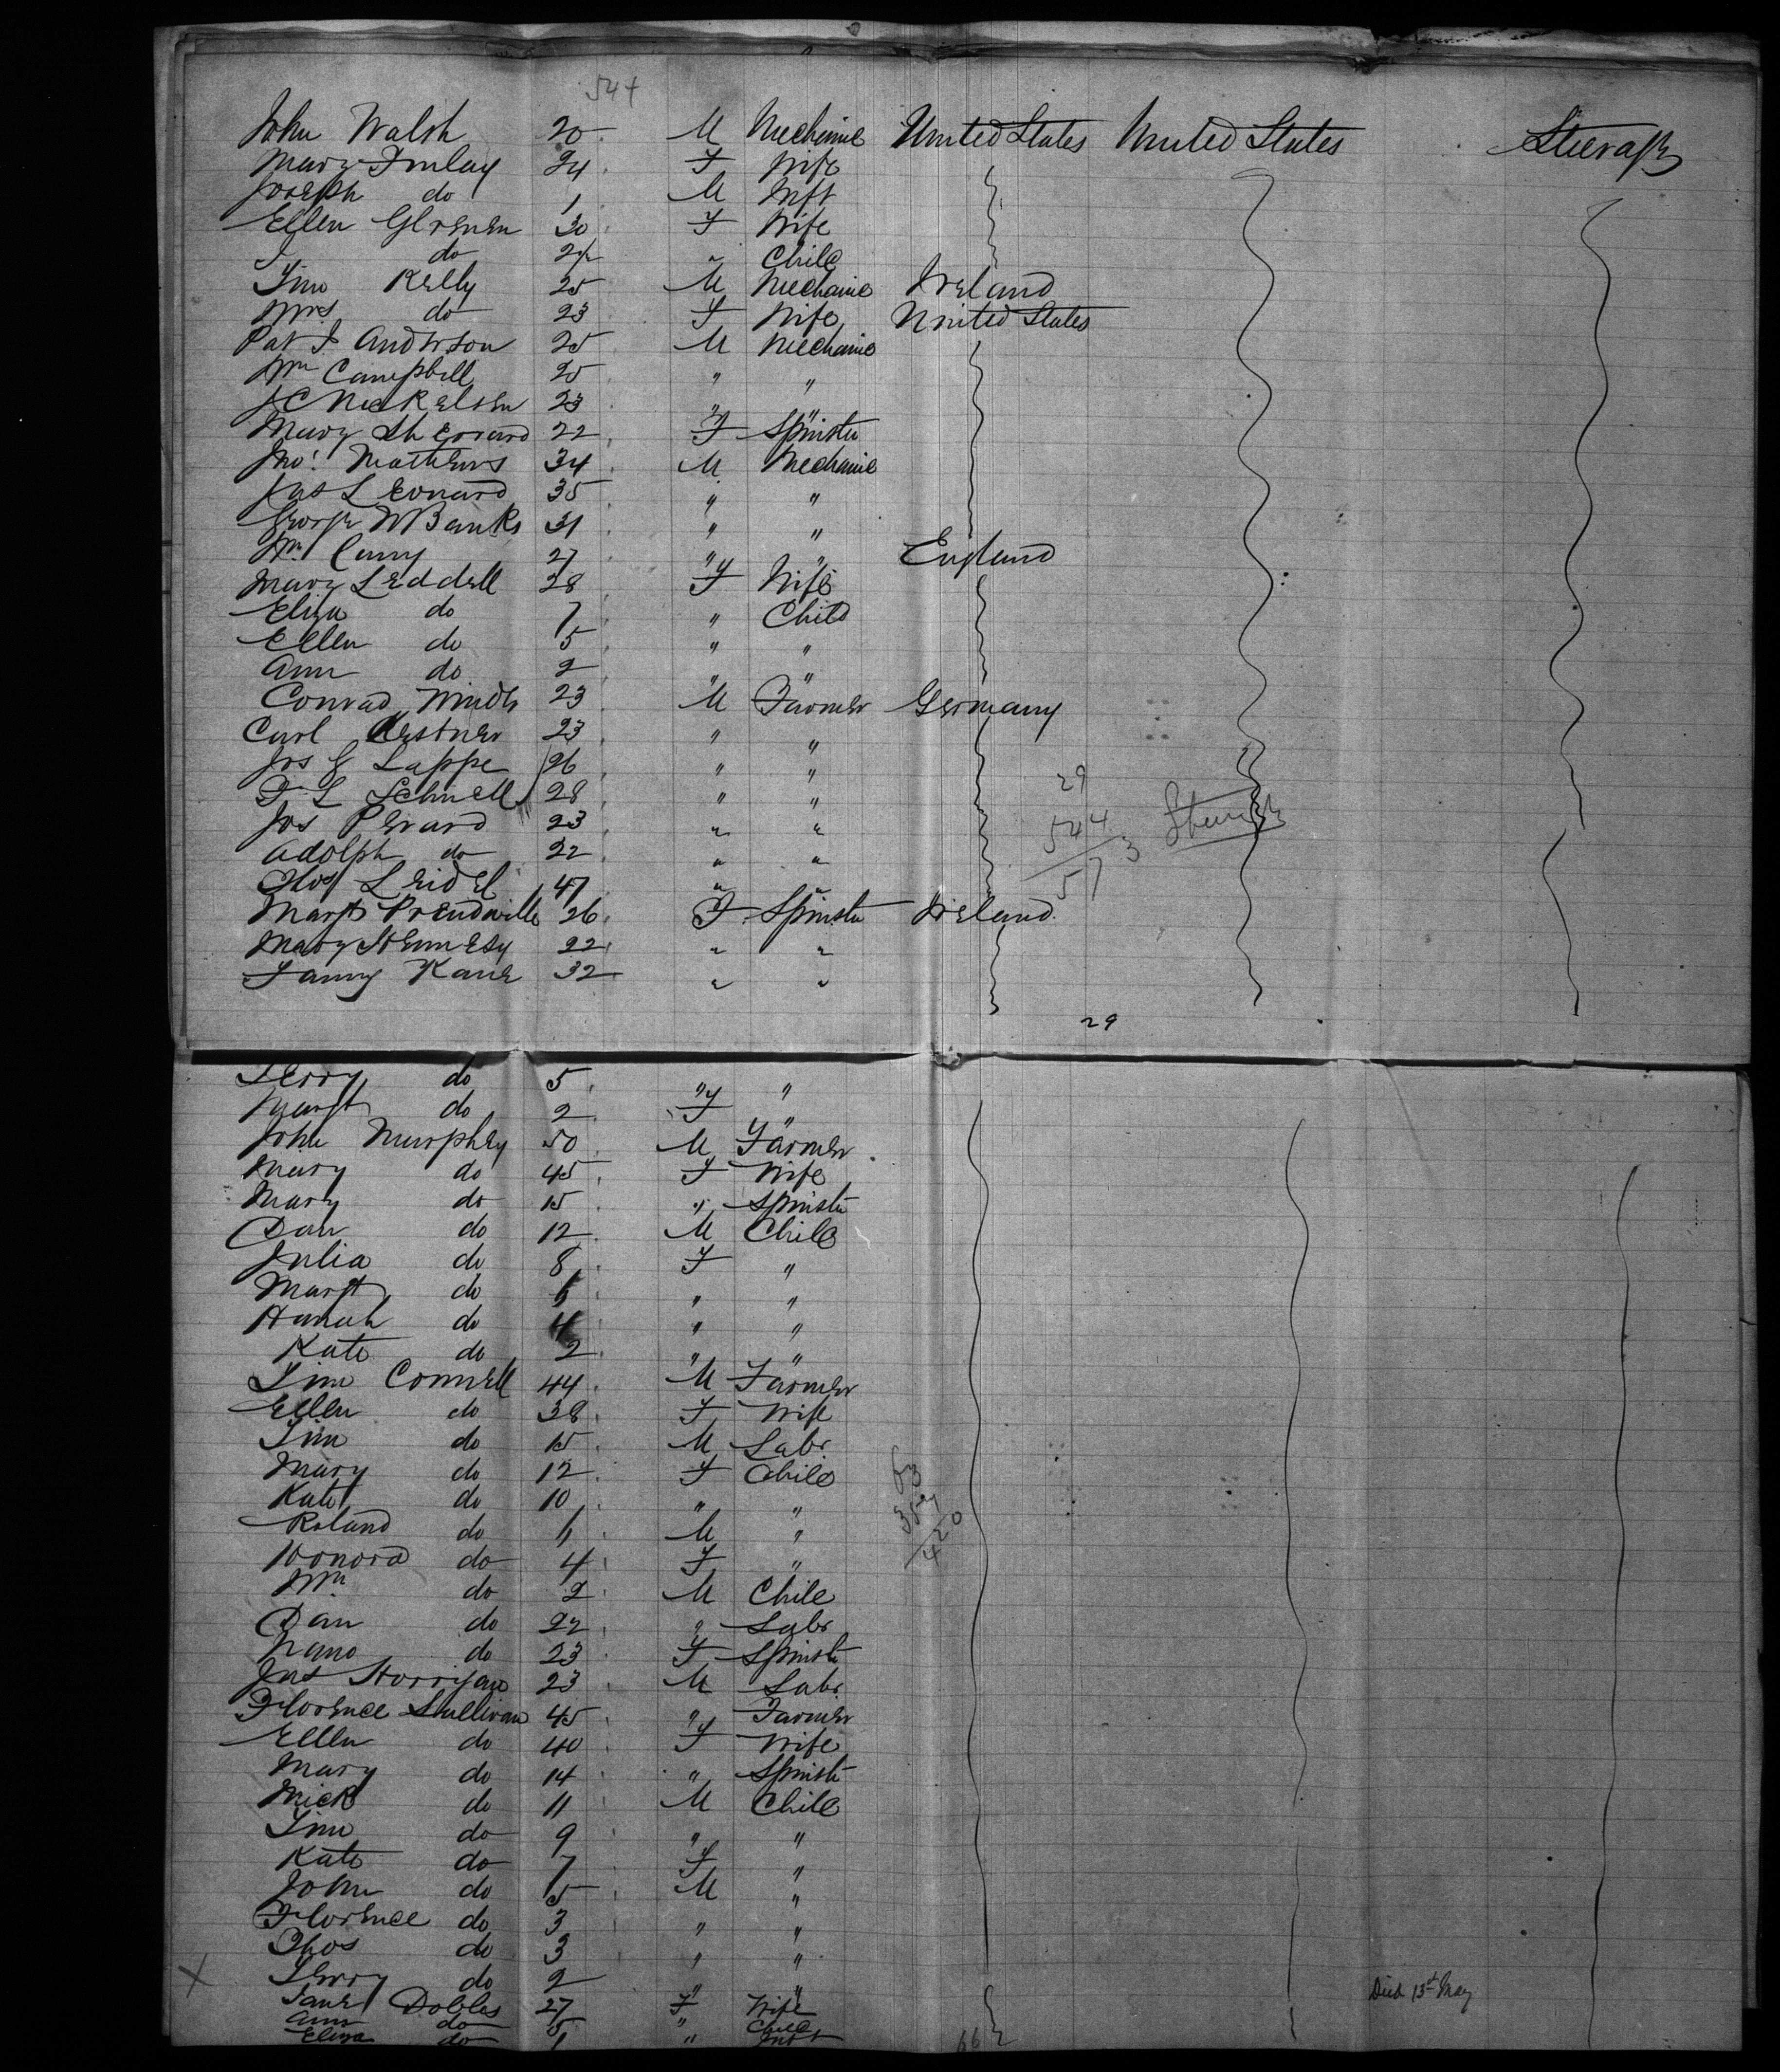 544
John Walsh 20 M Mechanic United States United States Steerage
Mary Finlay 24 F Wife
Joseph do 1 M Inft
Ellen Glrenen 30 F Wife
do " Child
Tim Kelly 25 M Mechanic Ireland
Mrs do 23 F Wife United States
Pat J Anderson 25 M Mechanic
Wm Campbell 25 " "
J C Nickelsen 23 " "
Mary Sherrard 22 F Spinstr
Jno. Mathews 34 M Mechanic
Jas Leonard 35 " "
George W Banks 31 " "
Wm Curry 27 " " England
Mary Leddell 28 F Wife
Eliza do 7 " Child
Ellen do 5 " "
Ann do 2 " "
Conrad 23 M Farmer Germany
Carl Kestner 23 " "
Jos G Lappe 26 " "
F L Schnell 28 " "
Jos Perard 23 " "
Adolph do 22 " "
Thos Leidel 47 " "
Margt Prendville 26 F Spinstr Ireland
Mary Hennesy 22 " "
Fanny Kane 32 " "
29
544
573
29
Jerry do 5 " "
Margt do 2 F "
John Murphey 50 M Farmer
Mary do 45 F Wife
Mary do 15 " Spinstr
Dan do 12 M Child
Julia do 8 F "
Margt do 6 " "
Hanah do 4 " "
Kate do 2 " "
Tim Connell 44 M Farmer
Ellen do 38 F Wife
Tim do 15 M Labr
Mary do 12 F Child
Kate do 10 " "
Roland do 6 M "
Honora do 4 F "
Wm do 2 M Child
Dan do 22 " Labr
Nano do 23 F Spinstr
Jas Horrigan 23 M Labr
Florence Sullivan 45 " Farmer
Ellen do 40 F Wife
Mary do 14 " Spinstr
Mick do 11 M Child
Tim do 9 " "
Kate do 7 F "
John do 5 M "
Florence do 3 " "
Thos do 3 " "
X Jerry do 2 " " Died 13th May
Jane Dobbs 27 F Wife
Ann do 5 " Child
Eliza do 1 " Inft
66